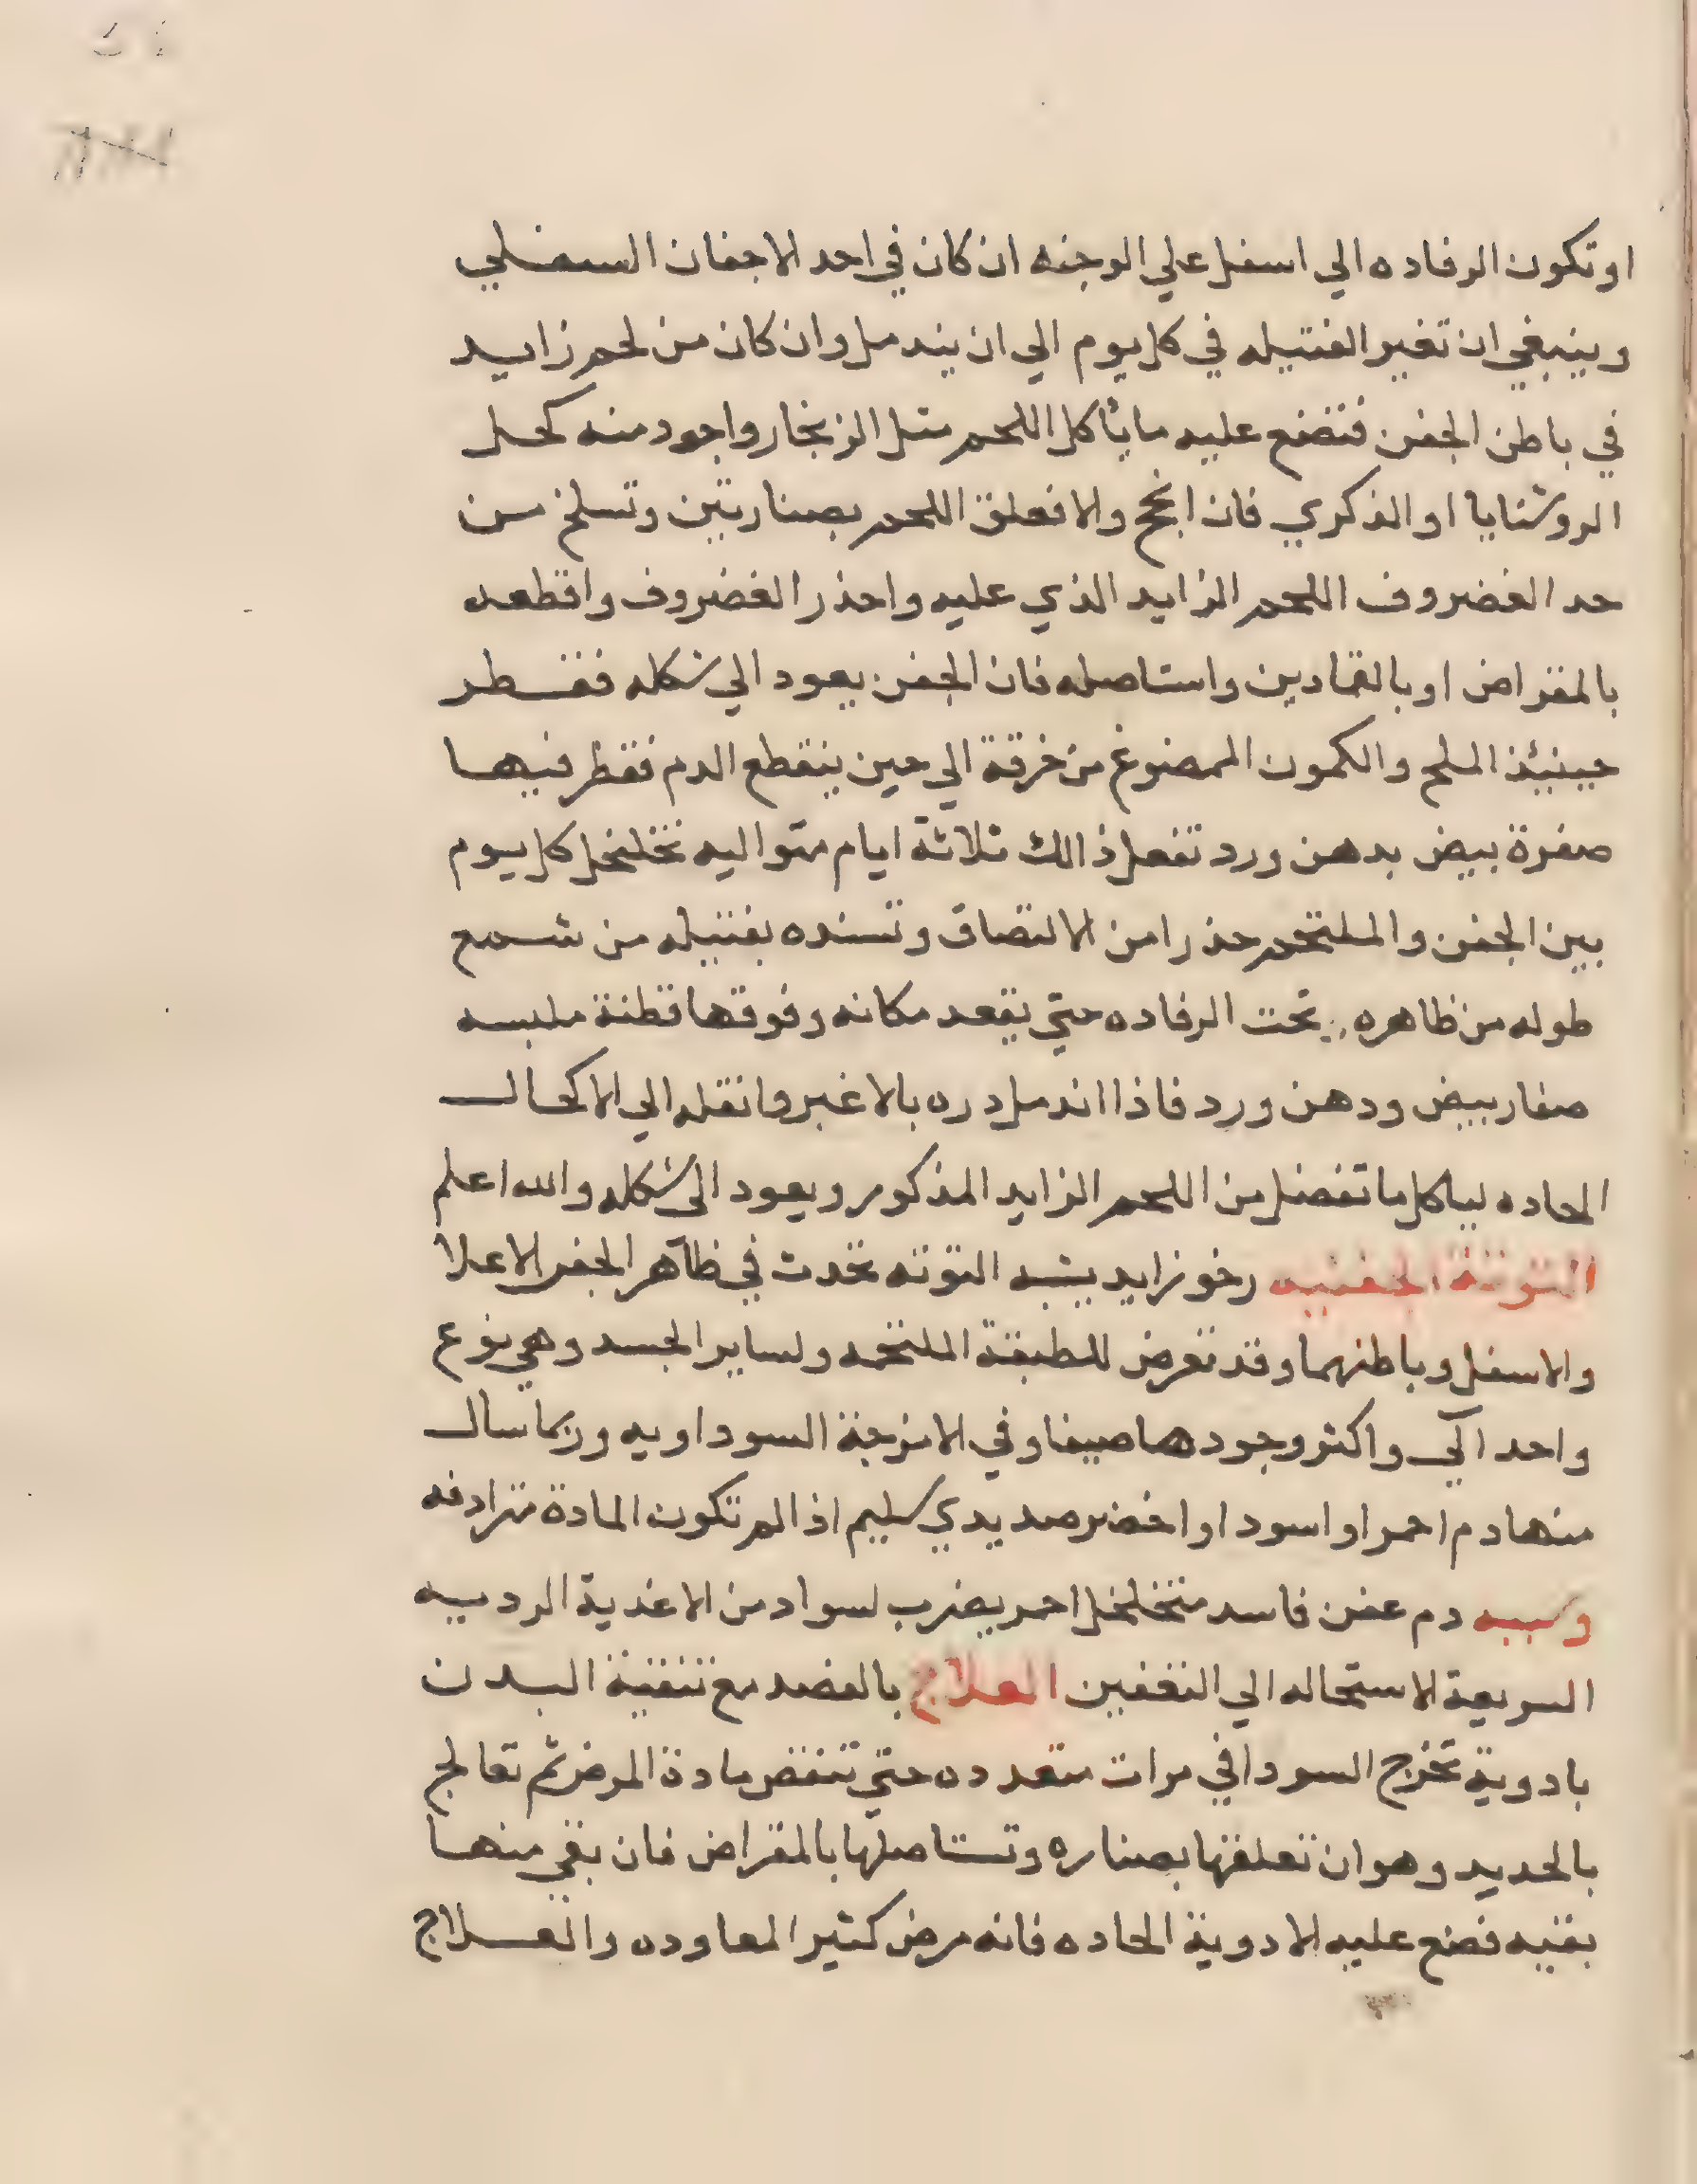 او تكون الرفاده الي اسفل علي الوجنه ان كان في احد الاجفان السفلي
وينبغي ان تغير الفتيله في كل يوم الي ان يندمل وان كان من لحم زايد
في باطن الجفن فتضع عليه ما يأكل اللحم مثل الزنجار واجود منه كحل
الروشنايا او الذكري فان انجح والا فعلق اللحم بصنارتين وتسلخ من
حد الغضروف اللحم الزايد الذي عليه واحذر الغضروف واقطعه
بالمقراض او بالقمادين واستاصله فان الجفن يعود الي شكله فقطر
حينيئذ الملح والكمون الممضوغ من خرقة الي حين ينقطع الدم فقطر فيها
صفرة بيض بدهن ورد تفعل ذالك ثلاثة ايام متواليه تخلخل كل يوم
بين الجفن والملتحم حذرا من الالتصاق وتسنده بفتيله من شمع
طوله من ظاهره تحت الرفاده حتي يقعد مكانه وفوقها قطنة ملبسه
صفار بيض ودهن ورد فاذا اندمل دره بالاغبر وانقله الي الاكحال
الحاده لياكل ما تفضل من اللحم الزايد المذكور ويعود الى شكله والله اعلم
التوتة الجفنيه رخو زايد يشبه التوته تحدث في ظاهر الجفن الاعلا
والاسفل وباطنهما وقد تعرض للطبقة الملتحمه ولساير الجسد وهي نوع
واحد آلي واكثر وجودها صيفا وفي الامزجة السوداويه وربما سال
منها دم احمر او اسود او اخضر صديدي سليم اذا لم تكون المادة مترادفه
وسببه دم عفن فاسد متخلخل احمر يضرب لسواد من الاغذية الرديه
السريعة الاستحاله الي التعفين العلاج بالفصد مع تنقية البدن
بادوية تخرج السودا في مرات متعدده حتي تنقص مادة المرض ثم تعالج
بالحديد وهو ان تعلقها بصناره وتستاصلها بالمقراض فان بقي منها
بقيه فضع عليه الادوية الحاده فانه مرض كثير المعاوده والعلاج